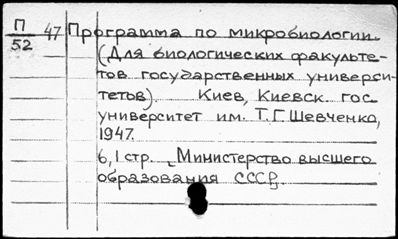 П/52 47 Программа по микробиологии.
(Для биологических факульте-
тов государственных универси-
тетов). Киев, Киевск. гос.
университет им. Т.Г. Шевченко,
1947.
6,1 стр. Министерство высшего
образования СССР.